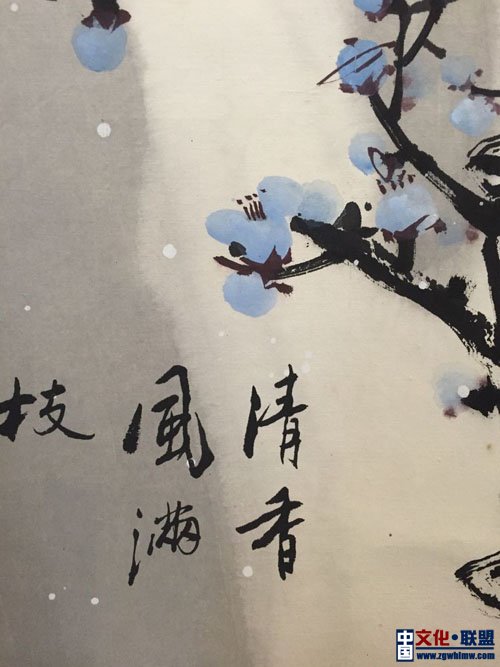 清香
風滿
枝
中国文化·联盟
www.zgwhlmw.com